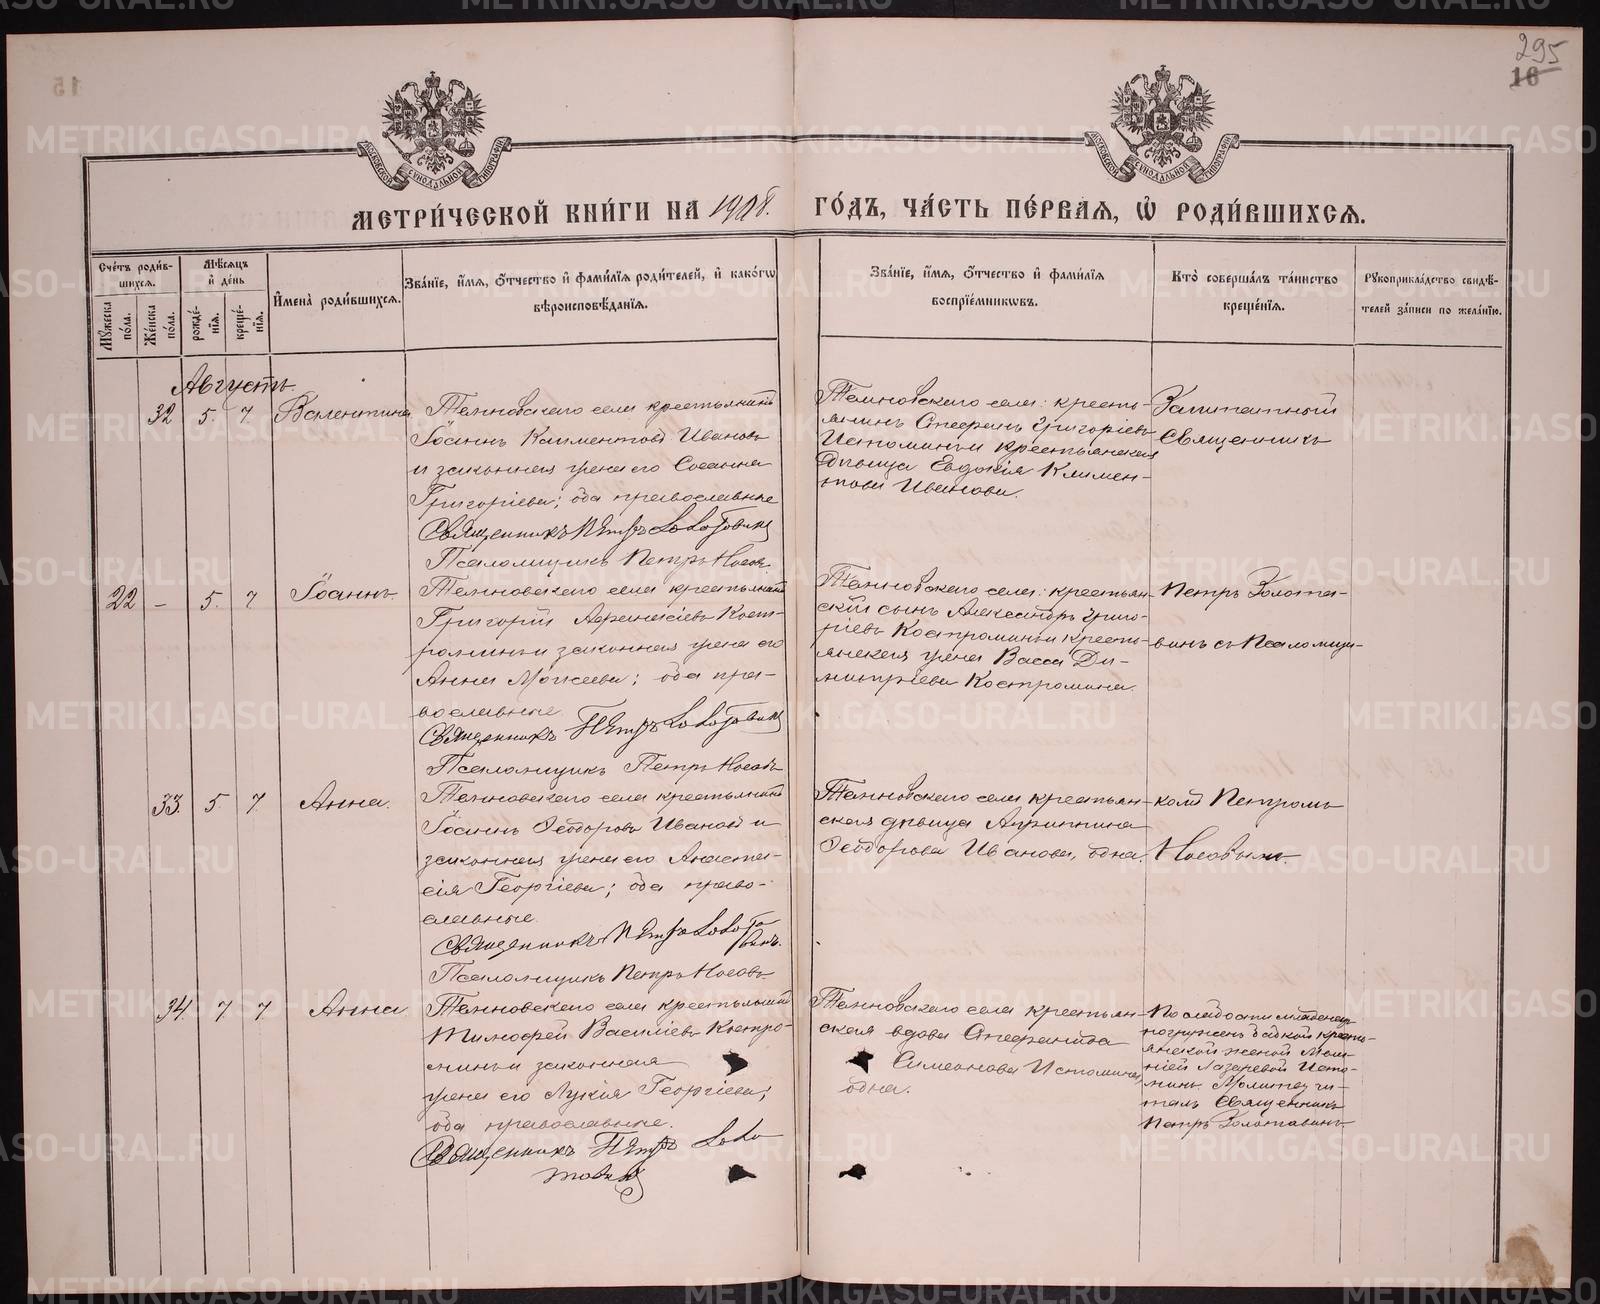 295
16
МОСКОВСКОЙ СѴНОДАЛЬНОЙ ТИПОГРАФІИ
МОСКОВСКОЙ СѴНОДАЛЬНОЙ ТИПОГРАФІИ
МЕТРИ́ЧЕСКОЙ КНИ́ГИ НА 1908 г. ГО́ДЪ, ЧА́СТЬ ПЕ́РВАЯ, Ѡ҆ РОДИ́ВШИХСЯ.
Сче́тъ роди́в-
шихся.
Мѣ́сяцъ
и҆ де́нь
Мꙋ́жеска по́ла.
Же́нска по́ла.
рожде́-
нїя.
креще́-
нїя.
И҆мена̀ роди́вшихся.
Зва́нїе, и҆́мя, ѻ҆́тчество и҆ фами́лїя роди́телей, и҆ како́гѡ
вѣроисповѣ́данїя.
Зва́нїе, и҆́мя, ѻ҆́тчество и҆ фами́лїя
воспрїе́мникѡвъ.
Кто̀ соверша́лъ та́инство
креще́нїя.
Рꙋкоприкла́дство свидѣ́-
телей за́писи по жела́нїю.
Августъ.
32 5. 7. Валентина
Темновскаго села крестьянинъ
Іоаннъ Климентовъ Ивановъ
и законная жена его Сосанна
Григоріева; оба православные
Священникъ Петръ Золотавинъ
Псаломщикъ Петръ Носовъ.
Темновскаго села: кресть-
янинъ Стефанъ Григорьевъ
Истоминъ и крестьянская
дѣвица Евдокія Климен-
това Иванова.
Запитанный
Священникъ
22 – 5. 7 Іоаннъ.
Темновскаго села крестьянинъ
Григорій Афанасіевъ Кост-
роминъ и законная жена его
Анна Моисеева; оба пра-
вославные.
Священникъ Петръ Золотавинъ
Псаломщикъ Петръ Носовъ
Темновскаго села: крестьян-
скій сынъ Александръ Григо-
ріевъ Костроминъ и кресть-
янская жена Васса Ди-
митріева Костромина.
Петръ Золота-
винъ съ Псаломщи-
33. 5 7. Анна.
Темновскаго села крестьянинъ
Іоаннъ Ѳеодоровъ Ивановъ и
законная жена его Анаста-
сія Георгіева; оба право-
славные.
Священникъ Петръ Золота-
винъ.
Псаломщикъ Петръ Носовъ
Темновскаго села крестьян-
ская дѣвица Агриппина
Ѳеодорова Иванова, одна.
комъ Петромъ
Носовымъ.
34. 7 7 Анна
Темновскаго села крестьянинъ
Тимофей Васильевъ Костро-
минъ и законная
жена его Лукія Георгіева;
оба православные.
Священникъ Петръ Золо-
тавинъ
Темновскаго села крестьян-
ская вдова Стефанида
Симеонова Истомина,
одна.
По слабости младенецъ
погруженъ бабкой кресть-
янской женой Мела-
ніей Лазаревой Исто-
миной. Молитву чи-
талъ Священникъ
Петръ Золотавинъ
METRIKI.GASO-URAL.RU